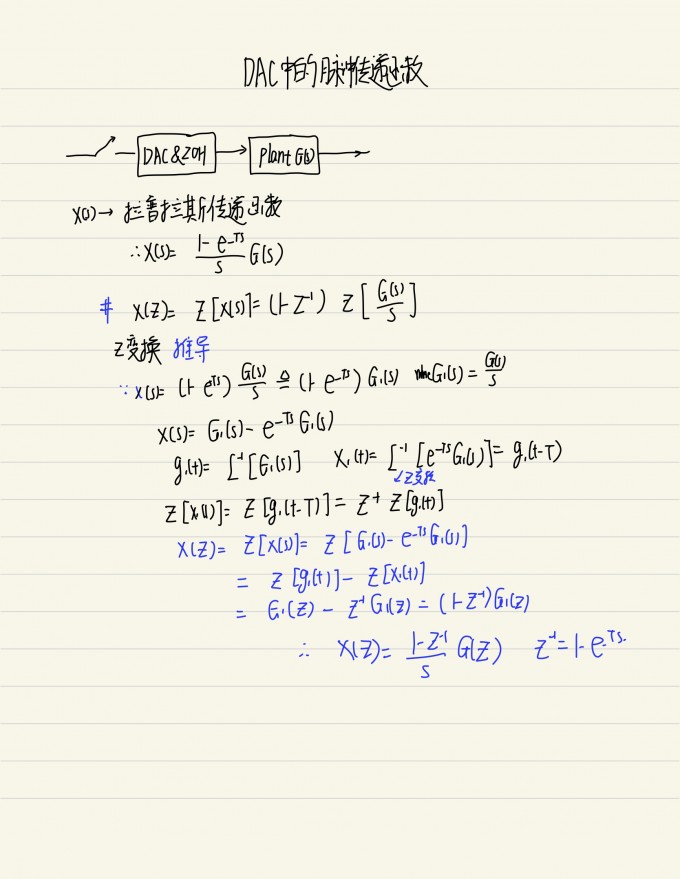 DAC中的脉冲传递函数
DAC&ZOH → Plant G(s)
X(s) → 拉普拉斯传递函数
∴X(s)= \frac{1-e^{-TS}}{S} G(s)
# X(Z)= Z[X(s)]=(1-Z^{-1}) Z[\frac{G(s)}{S}]
Z变换 推导
∵ X(s)= (1-e^{-TS}) \frac{G(s)}{S} ≜ (1-e^{-TS}) G₁(s) G₁(s) = \frac{G(s)}{S}
X(s)= G₁(s) - e^{-TS} G₁(s)
g₁(t)= L^{-1}[G₁(s)] X₁(t)= L^{-1}[e^{-TS}G₁(s)]= g₁(t-T)
↙Z变换
Z[X₁(t)]= Z[g₁(t-T)]= Z^{-1} Z[g₁(t)]
X(Z)= Z[X(s)]= Z[G₁(s)- e^{-TS}G₁(s)]
= Z[g₁(t)]- Z[X₁(t)]
= G₁(Z) - Z^{-1}G₁(Z) = (1-Z^{-1})G₁(Z)
∴ X(Z)= \frac{1-Z^{-1}}{S} G(Z) Z^{-1}=1-e^{-TS}.